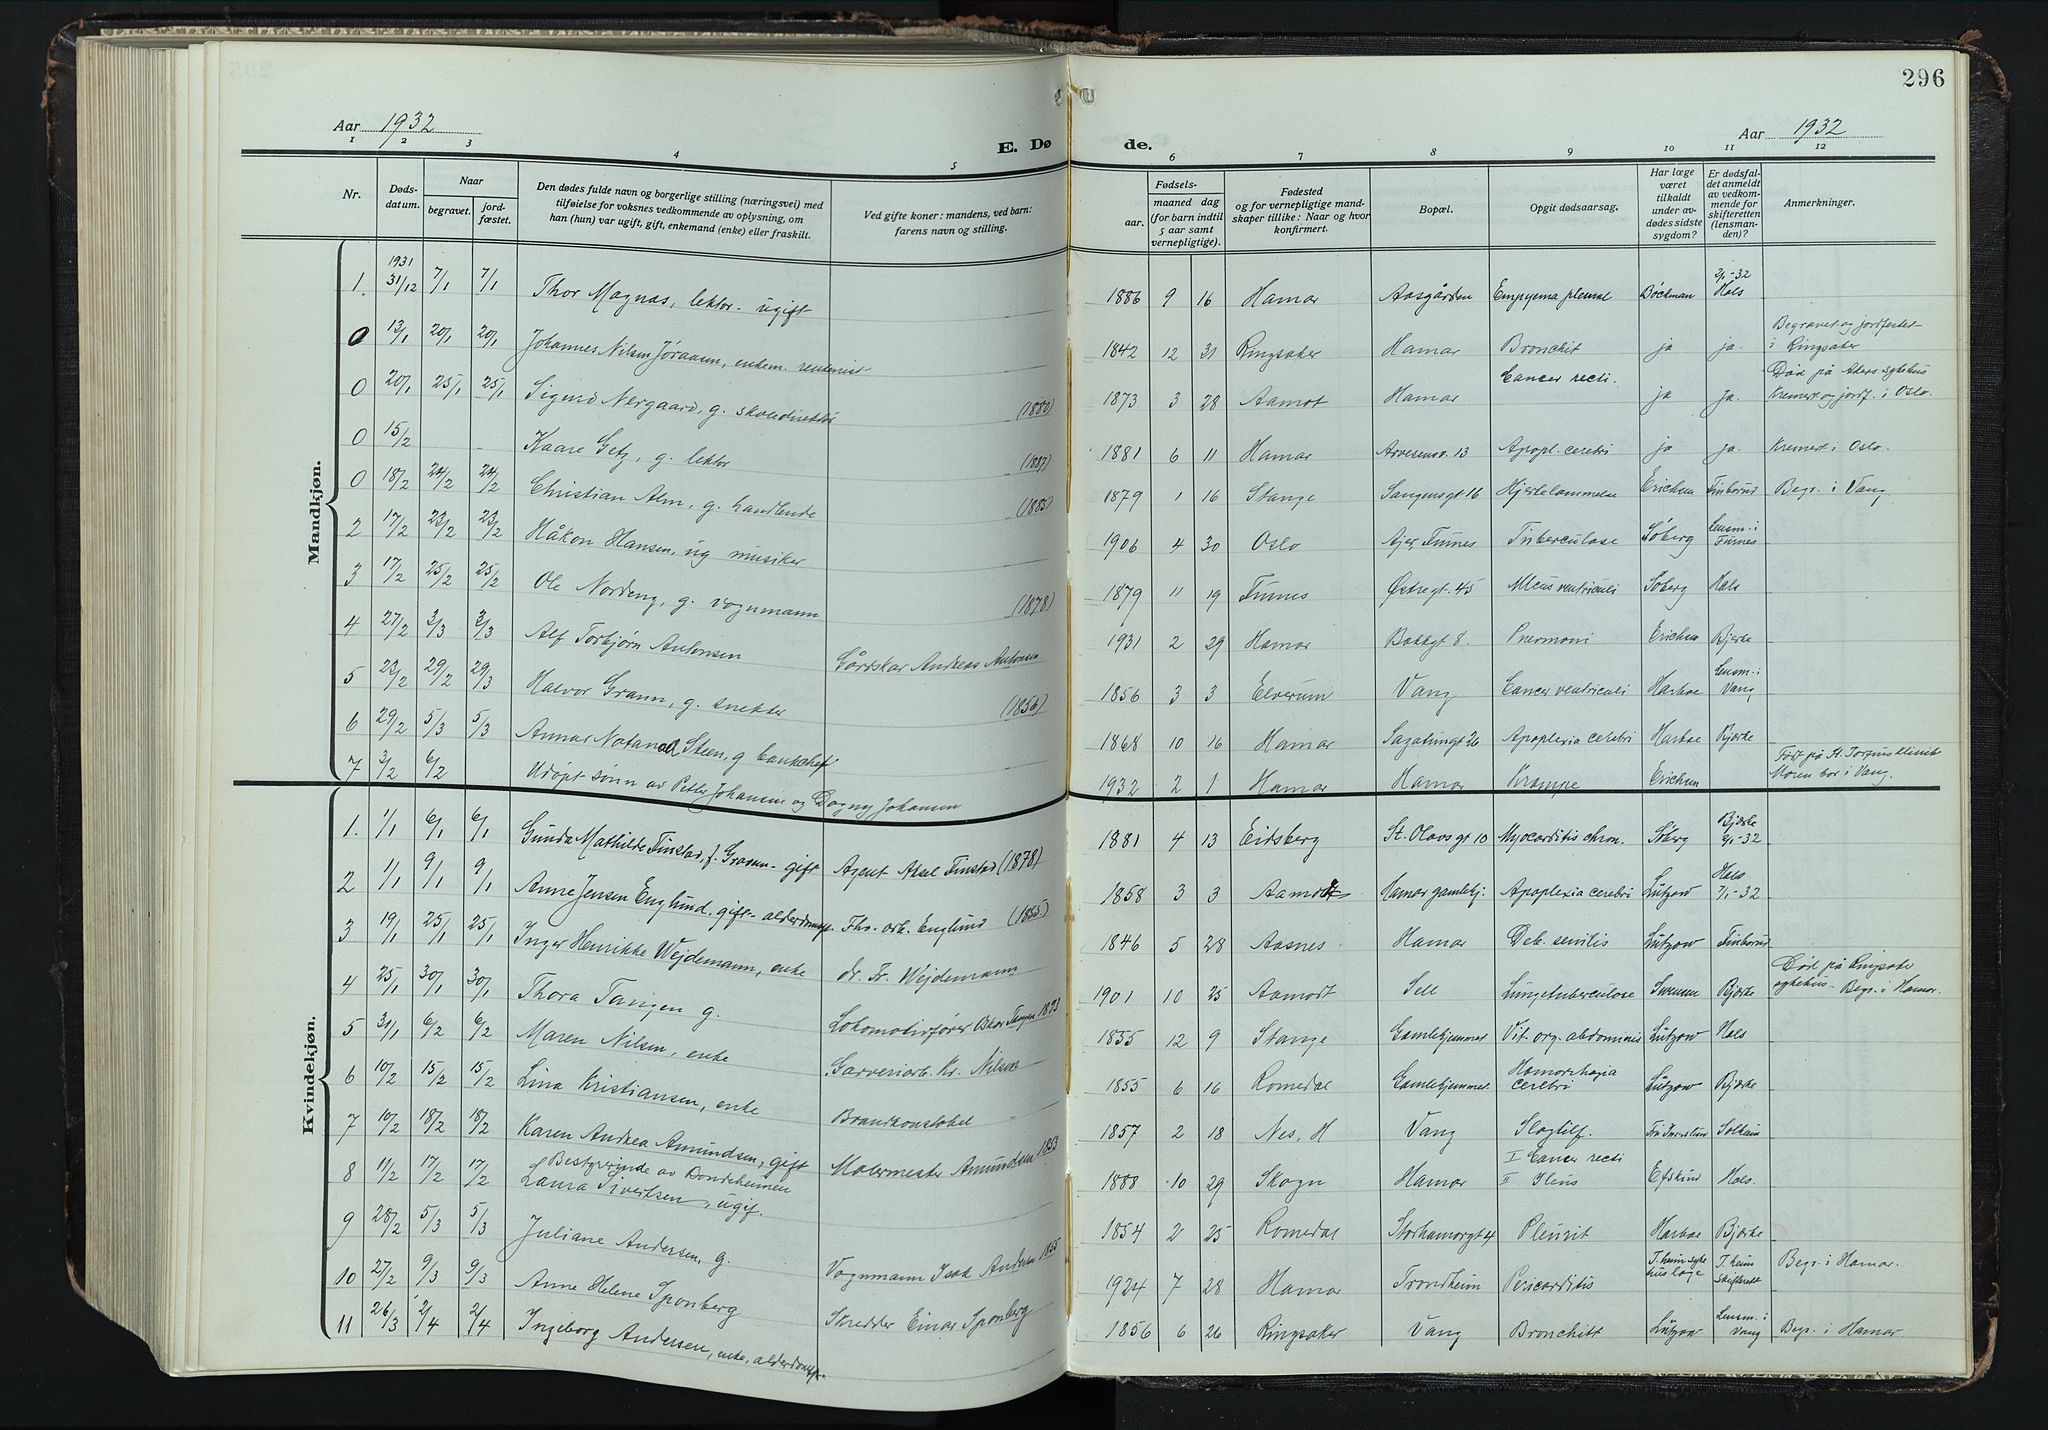 296
Aar 1932
E. Dø
de.
Aar 1932
1 2 3 4 5 6 7 8 9 10 11 12
Nr.
Døds-datum.
Naar
begravet.
jord-fæstet.
Den dødes fulde navn og borgerlige stilling (næringsvei) med
tilføielse for voksnes vedkommende av oplysning, om
han (hun) var ugift, gift, enkemand (enke) eller fraskilt.
Ved gifte koner: mandens, ved barn:
farens navn og stilling.
Fødsels-
aar.
maaned dag
(for barn indtil
5 aar samt
vernepligtige).
Fødested
og for vernepligtige mand-
skaper tillike: Naar og hvor
konfirmert.
Bopæl.
Opgit dødsaarsag.
Har læge
været
tilkaldt
under av-
dødes sidste
sygdom?
Er dødsfal-
det anmeldt
av vedkom-
mende for
skifteretten
(lensman-
den)?
Anmerkninger.
Mandkjøn.
1 1931 31/12 7/1 7/1 Thor Magnas, lektor - ugift 1886 9 16 Hamar Aasgården Empyema pleural Böckman 2/1-32 Hals
0 13/1 20/1 20/1 Johannes Nilsen Jøraasen, enkem. rentenist 1842 12 31 Ringsaker Hamar Bronchit ja ja. Begravet og jordfestet i Ringsaker
0 20/1 25/1 25/1 Sigurd Nergaard, g. skoledirektør (1880) 1873 3 28 Aamot Hamar Cancer recti. ja ja. Død på Akers sykehus Kremert og jordf. i Oslo.
0 15/2 - Kaare Getz, g. lektor (1887) 1881 6 11 Hamar Arvesensv. 13 Apopl. cerebri ja ja. Kremert i Oslo.
0 18/2 24/2 24/2 Christian Alm, g. handlende (1885) 1879 1 16 Stange Sangensgt 16 Hjertelammelse Erichsen Finborud Begr. i Vang
2 17/2 23/2 23/2 Håkon Hansen, ug musiker 1906 4 30 Oslo Ajer, Furnes Tuberculose Søberg Lensm. i Furnes
3 17/2 25/2 25/2 Ole Nordeng, g. vognmann (1878) 1879 11 19 Furnes Østregt. 45 Ulcus ventriculi Søberg Hals
4 27/2 3/3 3/3 Alf Torbjørn Antonsen Gårdskar Andreas Antonsen 1931 2 29 Hamar Bakkgt 8. Pnevmoni Erichsen Bjerke
5 23/2 29/2 29/3 Halvor Gramn, g. snekker (1856) 1856 3 3 Elverum Vang Cancer ventriculi Harboe Lensm. i Vang
6 29/2 5/3 5/3 Annar Natanael Steen, g bankchef 1868 10 16 Hamar Sagatungt 26 Apoplexia cerebri Harboe Bjerke
7 3/2 6/2 Udøpt sønn av Petter Johansen og Dagny Johansen 1932 2 1 Hamar Hamar Krampe Erichsen Født på St. Torfins klinik Moren bor i Vang.
Kvindekjøn.
1. 1/1 6/1 6/1 Gunda Mathilde Finstad, f. Graven - gift Agent Aksel Finstad (1878) 1881 4 13 Eidsberg St. Olavsgt 10 Myocarditis chron. Søberg Bjerke 2/1-32
2 1/1 9/1 9/1 Anne Jensen Englund, gift - alderdomsp. Fhv. arb. Englund (1855) 1858 3 3 Aamodt Hamar gamlehj. Apoplexia cerebri Lützow Hals 7/1-32
3 19/1 25/1 25/1 Inger Henrikke Wejdemann, enke dr. Fr. Wejdemann 1846 5 28 Aasnes Hamar Deb. senilis Lützow Finborud
4 25/1 30/1 30/1 Thora Tangen g. Lokomotivfører Tangen 1893 1901 10 25 Aamodt Sell Lungetuberculose Svensen Bjerke Død på Ringsake sykehus - Begr. i Hamar.
5 31/1 6/2 6/2 Maren Nilsen, enke Garveriarb. Kr. Nilsen 1855 12 9 Stange Gamlehjemmet Vit. org. abdominis Lützow Hals
6 10/2 15/2 15/2 Lina Kristiansen, enke Brandkonstabel 1855 6 16 Romedal Gamlehjemmet. Hæmorrhagia cerebri Lützow Bjerke
7 10/2 18/2 18/2 Karen Andrea Amundsen, gift Malermester Amundsen 1853 1857 2 18 Nes, H Vang Slagtilf. Solheim
8 11/2 17/2 17/2 Bestyrerinde av Bondeheimen Laura Sivertsen, ugif. 1888 10 29 Skogn Hamar I Cancer recti II Ileus Efskind Hals.
9 28/2 5/3 5/3 Juliane Andersen, g. Vognmann Isak Andersen 1855 1854 2 25 Romedal Storhamargt 4 Pleurit Harboe Bjerke
10 27/2 9/3 9/3 Anne Helene Sponberg Skredder Einar Sponberg 1924 7 28 Hamar Trondheim Pericarditis T.heim syke hus læge T.heim skifterett Begr. i Hamar.
11 26/3 2/4 2/4 Ingeborg Andersen, enke, alderdomsp. 1856 6 26 Ringsaker Vang Bronchitt Lützow Lensm. i Vang Begr. i Hamar